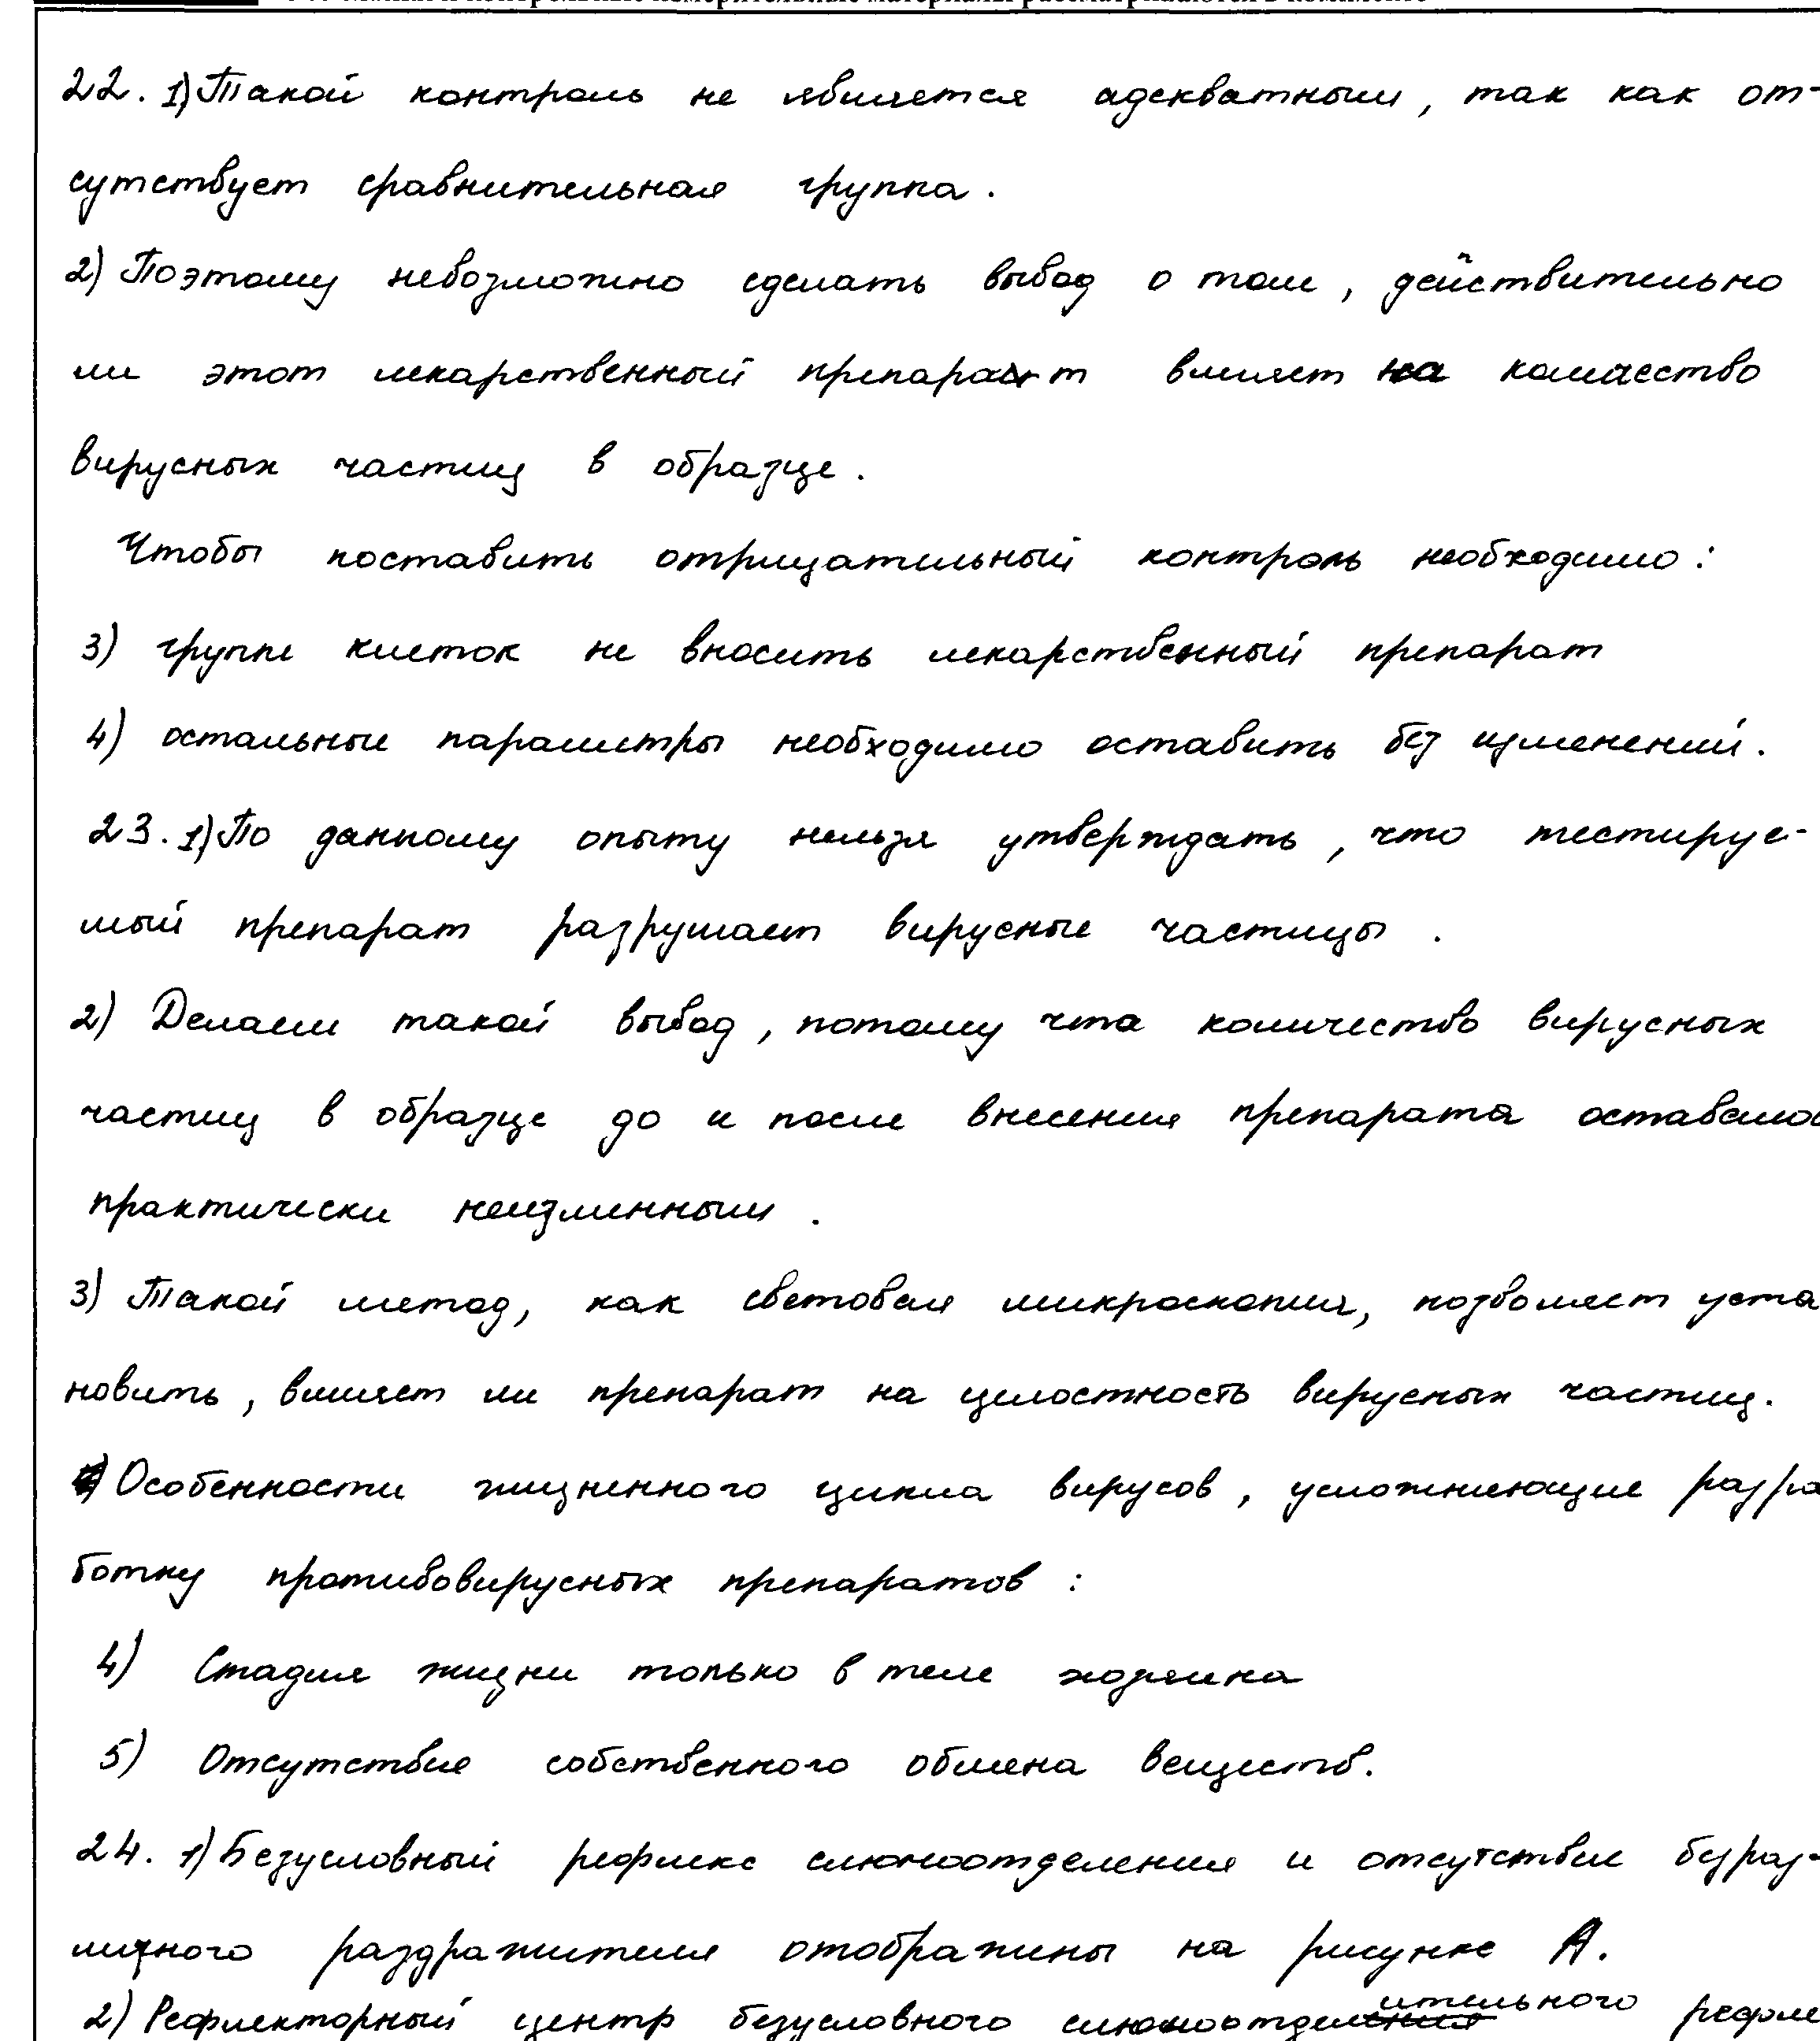 22. 1) Такой контроль не является адекватным, так как от-
сутствует сравнительная группа.
2) Поэтому невозможно сделать вывод о том, действительно
ли этот лекарственный препарат влияет на количество
вирусных частиц в образце.
Чтобы поставить отрицательный контроль необходимо:
3) группе клеток не вносить лекарственный препарат
4) остальные параметры необходимо оставить без изменений.
23. 1) По данному опыту нельзя утверждать, что тестируе-
мый препарат разрушает вирусные частицы.
2) Делаем такой вывод, потому что количество вирусных
частиц в образце до и после внесения препарата оставалос
практически неизменным.
3) Такой метод, как световая микроскопия, позволяет уста
новить, влияет ли препарат на целостность вирусных частиц.
Особенности жизненного цикла вирусов, усложняющие разра
ботку противовирусных препаратов:
4) Стадия жизни только в теле хозяина
5) Отсутствие собственного обмена веществ.
24. 1) Безусловный рефлекс слюноотделения и отсутствие безраз-
личного раздражителя отображены на рисунке А.
2) Рефлекторный центр безусловного слюноотделительного рефле